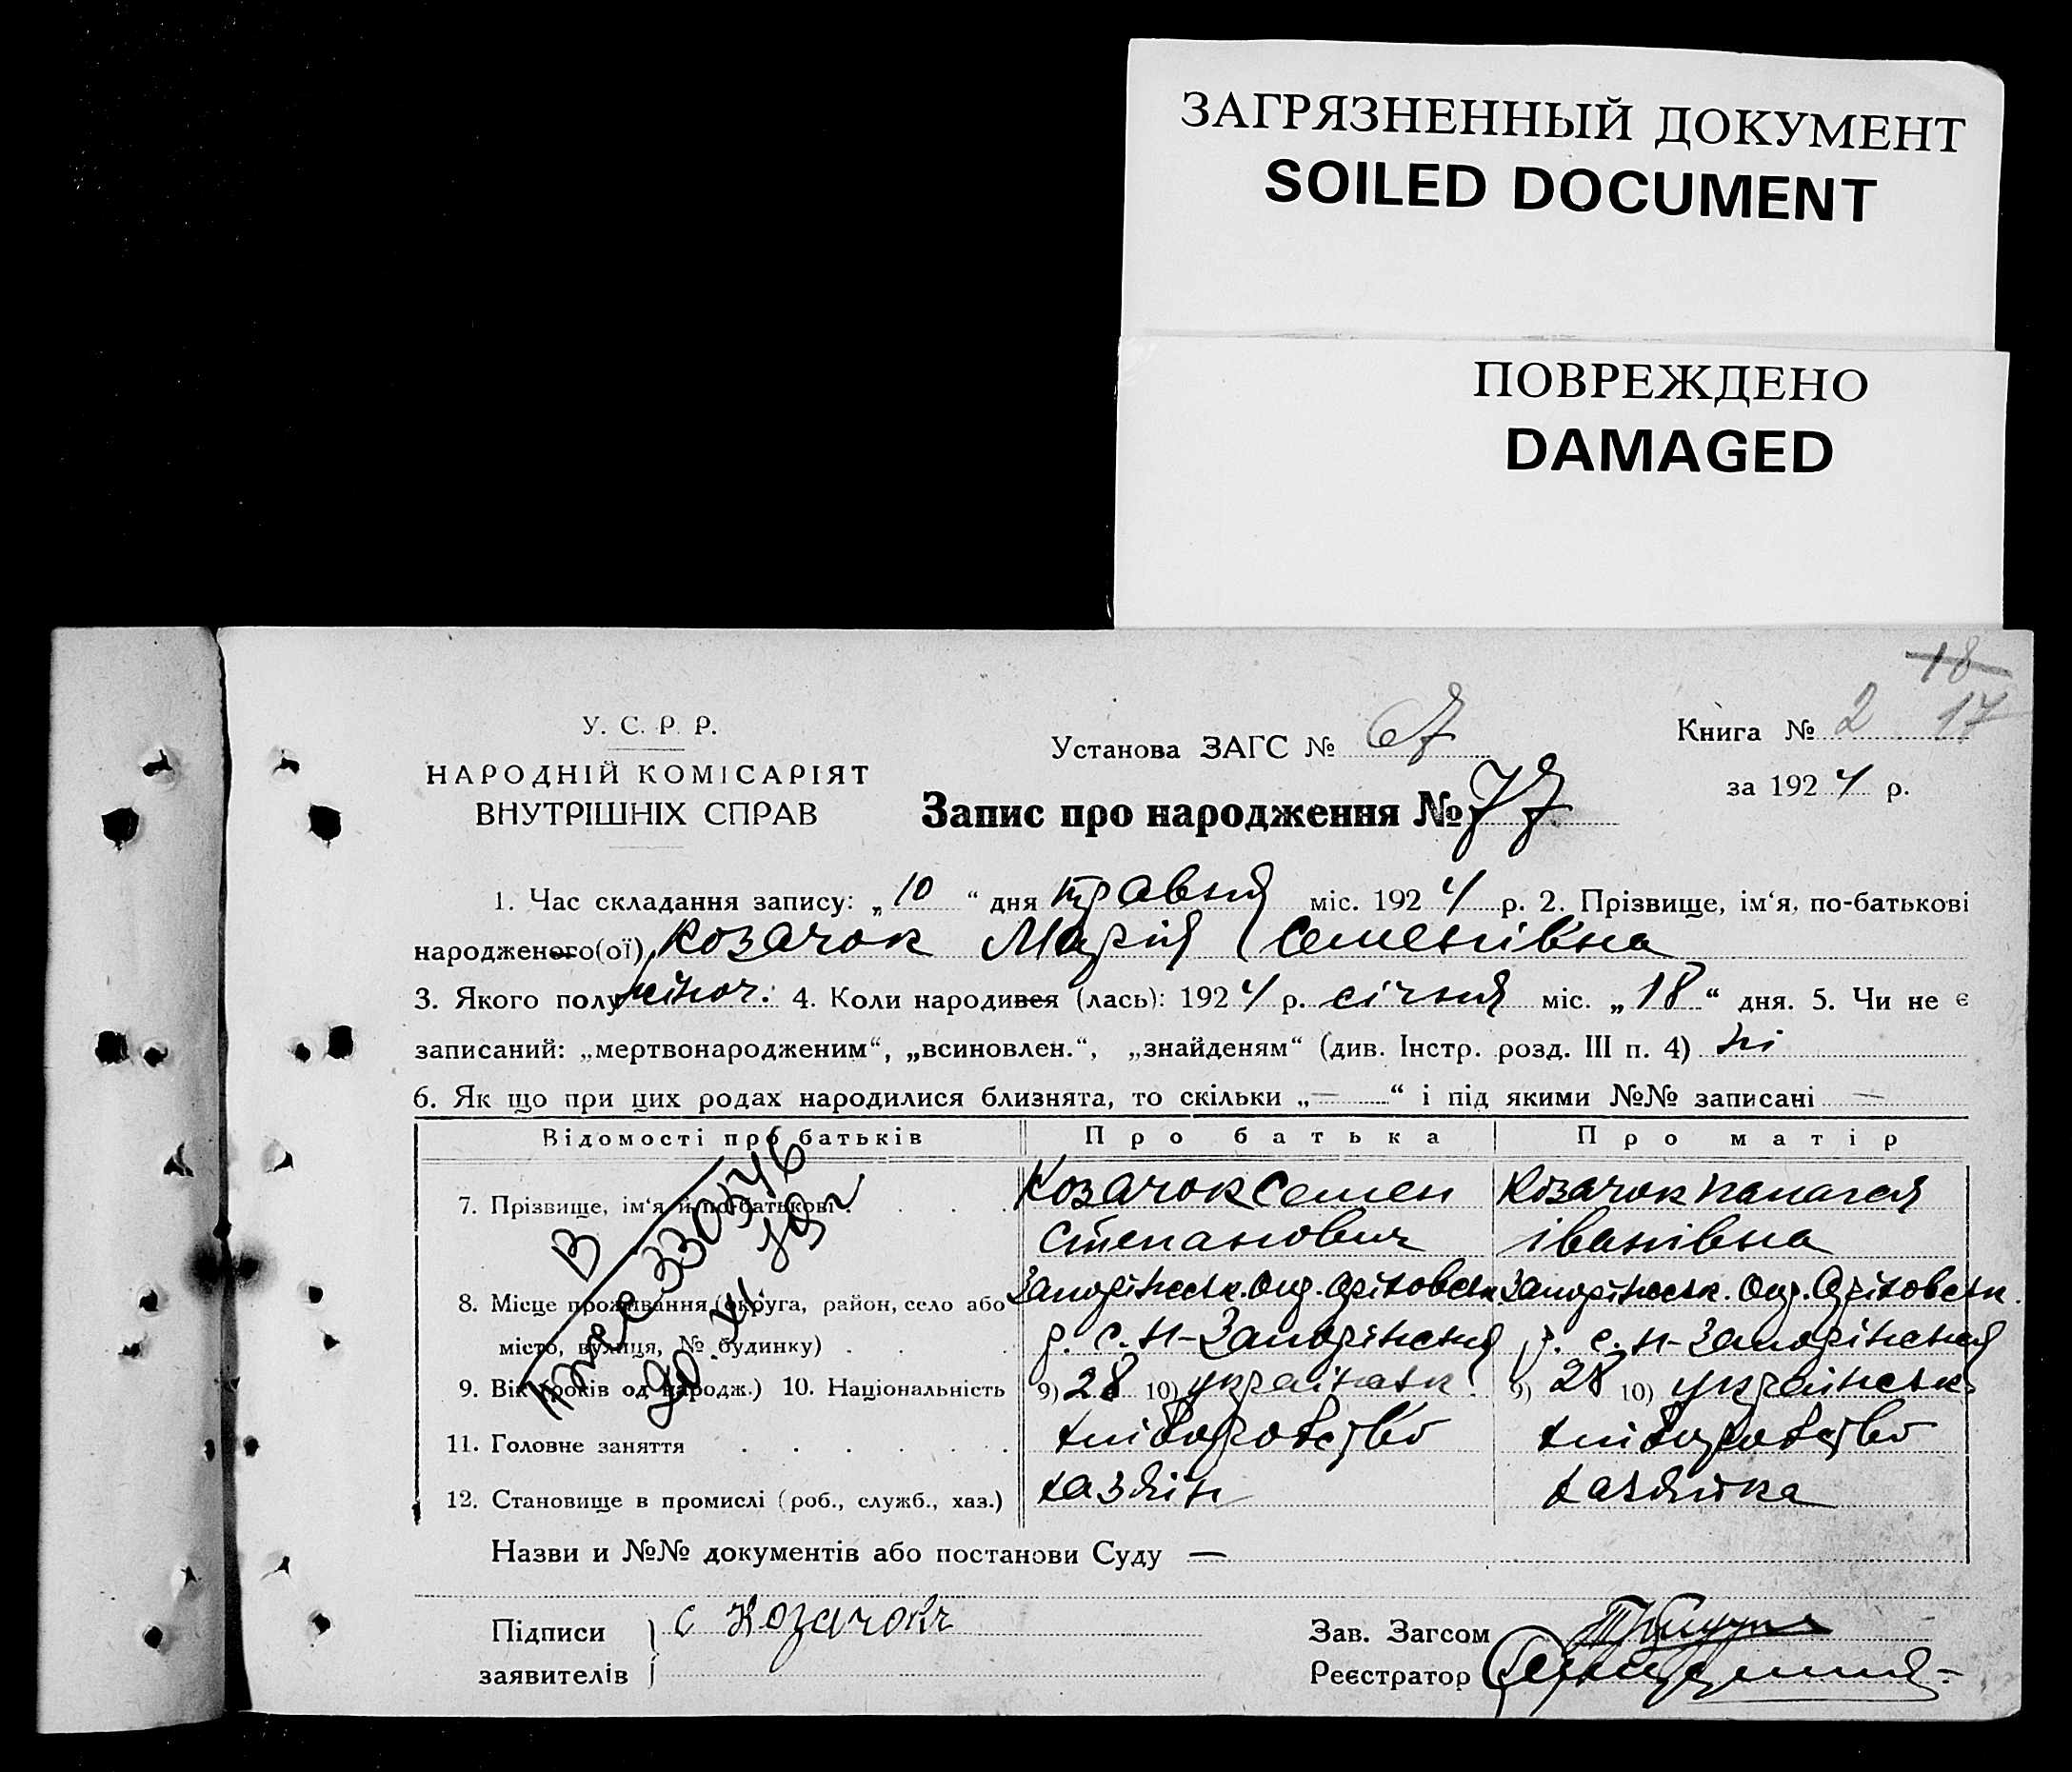 ЗАГРЯЗНЕННЫЙ ДОКУМЕНТ
SOILED DOCUMENT
ПОВРЕЖДЕНО
DAMAGED
18
У. С. Р. Р.
НАРОДНІЙ КОМІСАРІЯТ
ВНУТРІШНІХ СПРАВ
Установа ЗАГС № 67
Книга № 2 17
за 1924 р.
Запис про народження № 77
1. Час складання запису: „10“ дня травня міс. 1924 р. 2. Прізвище, ім‘я, по-батькові
народженого(ої) Козачок Марія Семенівна
3. Якого полу жіноч. 4. Коли народився (лась): 1924 р. січня міс. „18“ дня. 5. Чи не є
записаний: „мертвонародженим“, „всиновлен.“, „знайденям“ (див. Інстр. розд. III п. 4) ні
6. Як що при цих родах народилися близнята, то скільки „—“ і під якими №№ записані —
Відомості про батьків Про батька Про матір
7. Прізвище, ім‘я й по-батькові Козачок Семен Козачок Панагея
Степанович Іванівна
8. Місце проживання (округа, район, село або Запоріжськ. Окр. Оріховськ. Запоріжськ. Окр. Оріховськ.
місто, вулиця, № будинку) р. с. Н-Запоріжжя р. с. Н-Запоріжжя
9. Вік (років од народж.) 10. Національність 9) 28 10) українськ. 9) 28 10) українськ.
11. Головне заняття хліборобство хліборобство
12. Становище в промислі (роб., служб., хаз.) хазяїн хазяйка
В
330346
Назви и №№ документів або постанови Суду —
Підписи С Козачок Зав. Загсом
заявителів Реєстратор